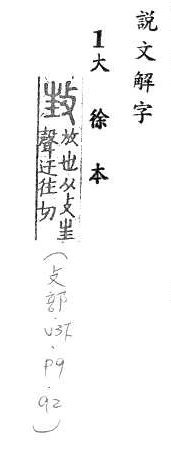 説文解字
1大徐本
放也从攴㞷
聲迂往切
（攴部.V3下.P9.92）